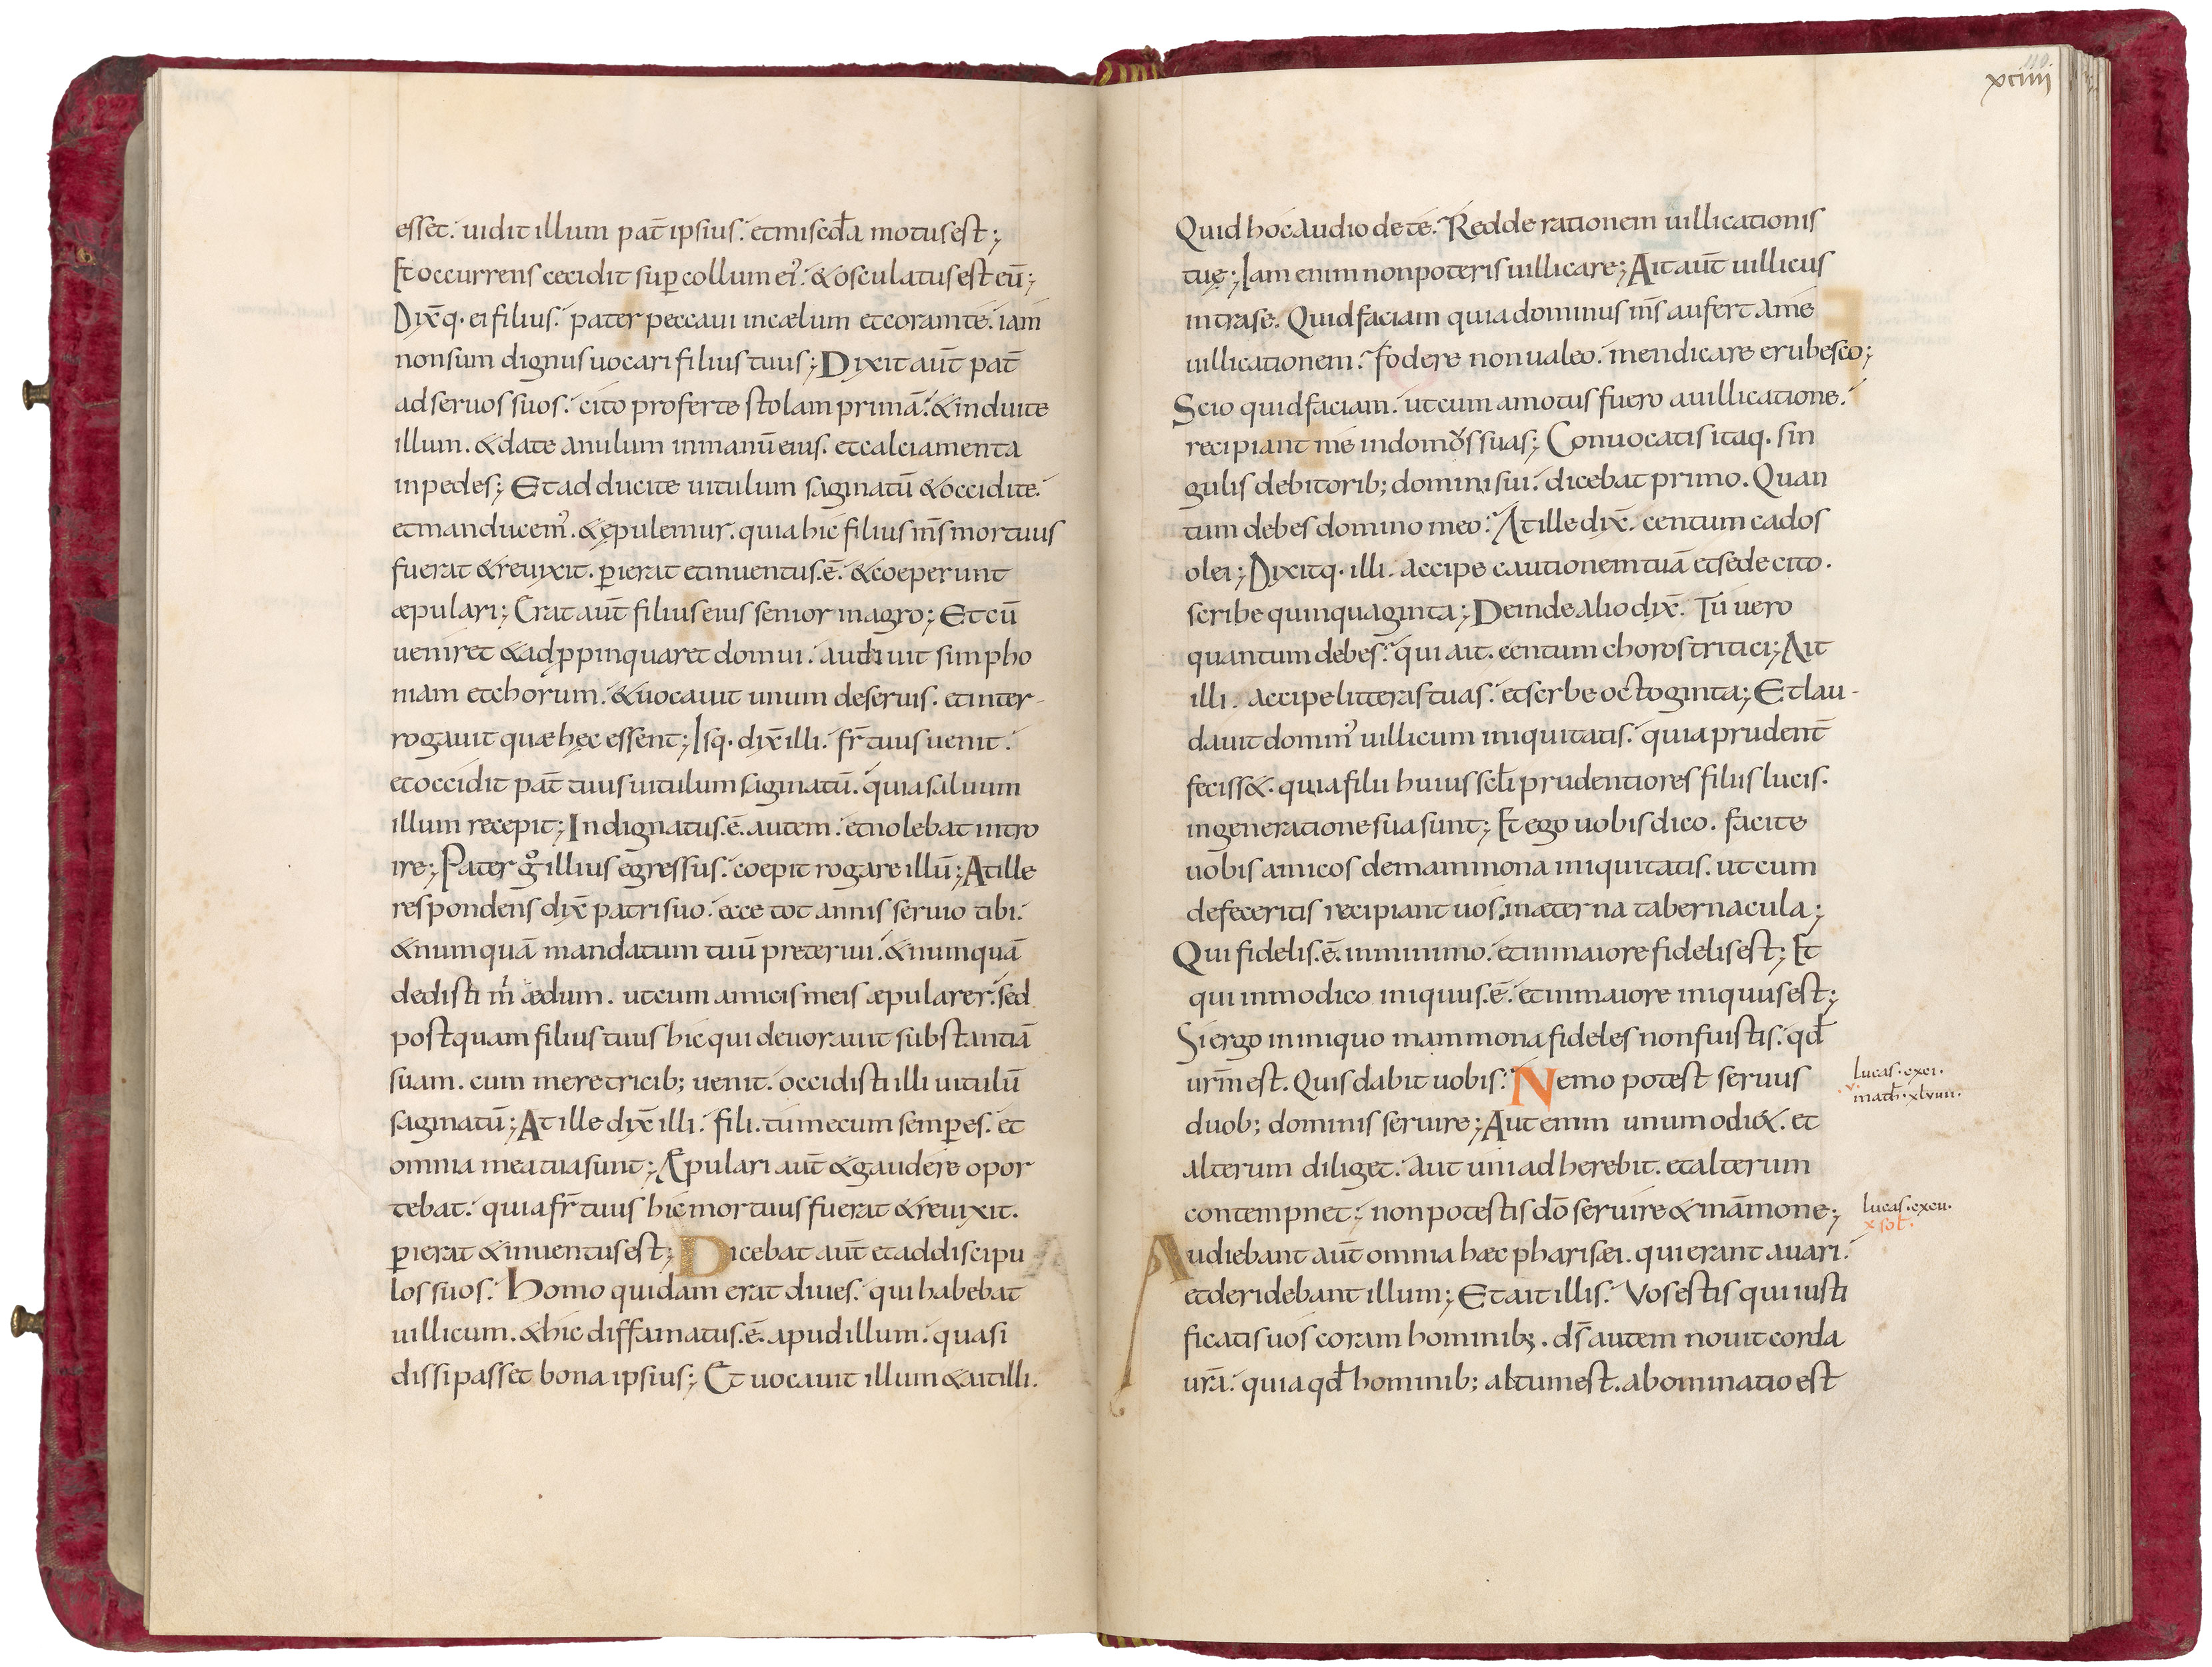 esset. uidit illum pat̄ ipsius. et miscd̄a motus est;
Et occurrens cecidit sup collum ei᾿. & osculatus est eū;
Dix̄q. ei filius. pater peccaui in cælum et coram te. iam
non sum dignus uocari filius tuus; Dixit aut̄ pat̄
ad seruos suos. cito proferte stolam primā. & induite
illum. & date anulum in manū eius. et calciamenta
in pedes; Et adducite uitulum saginatū & occidite.
et manducem᾿. & ępulemur. quia hic filius m̄s mortuus
fuerat & reuixit. ꝑierat et inuentus .ē. & coeperunt
æpulari; Erat aut̄ filius eius senior in agro; Et cū
ueniret & adꝓpinquaret domui. audiuit simpho
niam et chorum. & uocauit unum de seruis. et inter-
rogauit quæ hęc essent; Isq. dix̄ illi. fr̄ tuus uenit.
et occidit pat̄ tuus uitulum saginatū. quia saluum
illum recepit; Indignatus .ē. autem. et nolebat intro
ire; Pater gͦ illius egressus. coepit rogare illū; At ille
respondens dix̄ patri suo. ecce tot annis seruio tibi.
& numquā mandatum tuū preteriui. & numquā
dedisti m̍ ædum. ut cum amicis meis æpularer. sed
postquam filius tuus hic qui deuorauit substantiā
suam. cum meretricib; uenit. occidisti illi uitulū
saginatū; At ille dix̄ illi. fili. tu mecum semꝑ es. et
omnia mea tua sunt; Æpulari aut̄ & gaudere opor
tebat. quia fr̄ tuus hic mortuus fuerat & reuixit.
ꝑierat & inuentus est; Dicebat aut̄ et ad discipu
los suos. Homo quidam erat diues. qui habebat
uillicum. & hic diffamatus .ē. apud illum. quasi
dissipasset bona ipsius; Et uocauit illum & ait illi.
xciiii
Quid hoc audio de te. Redde rationem uillicationis
tuę; Iam enim non poteris uillicare; Ait aut̄ uillicus
intra se. Quid faciam quia dominus m̄s aufert a me
uillicationem. Fodere non ualeo. mendicare erubesco;
Scio quid faciam. ut cum amotus fuero a uillicatione.
recipiant me in domos suas; Conuocatis itaq. sin
gulis debitorib; domini sui. dicebat primo. Quan
tum debes domino meo. At ille dix̄. centum cados
olei; Dixitq. illi. accipe cautionem tuā et sede cito.
scribe quinquaginta; Deinde alio dix̄. Tu uero
quantum debes. qui ait. centum choros tritici; Ait
illi. accipe litteras tuas. et scrbe octoginta; Et lau-
dauit domin᾿ uillicum iniquitatis. quia prudent̄
feciss&. quia filii huius scl̄i prudentiores filiis lucis.
in generatione sua sunt; Et ego uobis dico. facite
uobis amicos de mammona iniquitatis. ut cum
defeceritis recipiant uos in æterna tabernacula;
Qui fidelis .ē. in minimo. et in maiore fidelis est; Et
qui in modico iniquus .ē. et in maiore iniquus est;
Si ergo in iniquo mammona fideles non fuistis. qd̄
urm̄ est. Quis dabit uobis. Nemo potest seruus
lucas. cxci.
v. math̄. xlviii.
duob; dominis seruire; Aut enim unum odi&. et
alterum diliget. aut uni adherebit. et alterum
contempnet; non potestis dō seruire & māmone;
lucas. cxcii.
x sol̄.
Audiebant aut̄ omnia hæc pharisæi. qui erant auari.
et deridebant illum; Et ait illis. Vos estis qui iusti
ficatis uos coram hominib;. ds̄ autem nouit corda
urā. quia qd̄ hominib; altum est. abominatio est